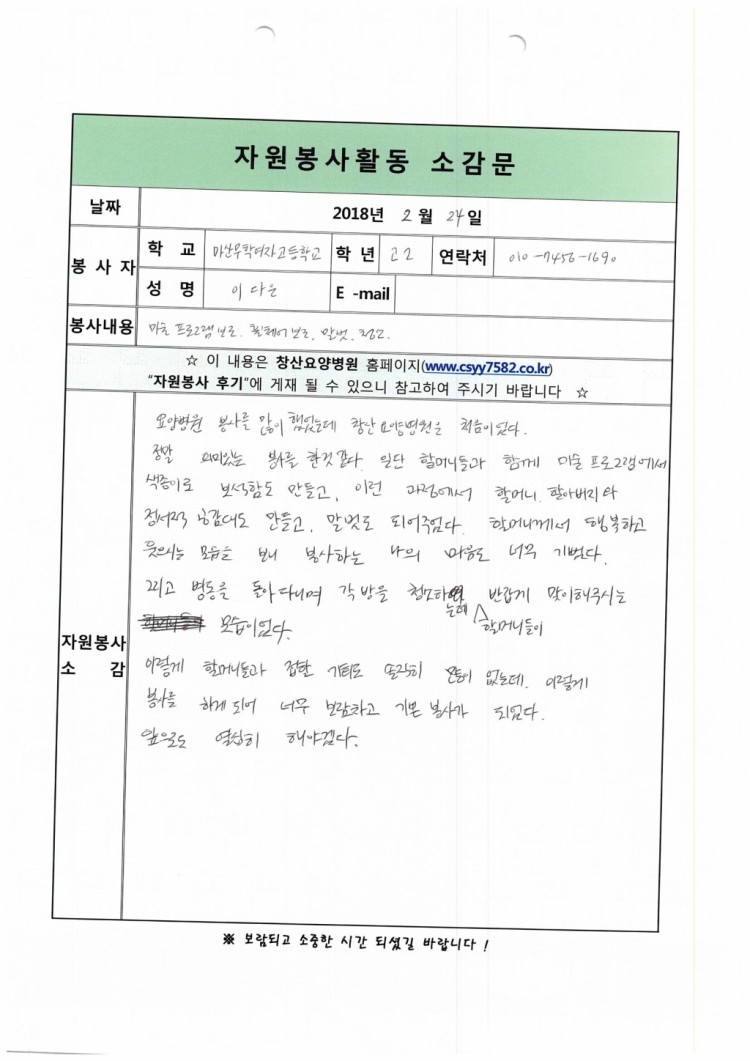 자원봉사활동 소감문
날짜 2018년 2월 24일
봉사자 학교 마산무학여자고등학교 학년 고2 연락처 010-7456-1690
성명 이다운 E-mail
봉사내용 미술 프로그램 보조, 휠체어 보조, 말벗, 청소.
☆ 이 내용은 창산요양병원 홈페이지(www.csyy7582.co.kr)
"자원봉사 후기"에 게재 될 수 있으니 참고하여 주시기 바랍니다 ☆
자원봉사 소감
요양병원 봉사를 많이 했었는데 창산요양병원은 처음이었다.
정말 의미있는 봉사를 한것 같다. 일단 할머니들과 함께 미술 프로그램에서
색종이로 보석함도 만들고, 이런 과정에서 할머니, 할아버지와
정서적 공감대도 만들고, 말벗도 되어주었다. 할머니께서 행복하고
웃으시는 모습을 보니 봉사하는 나의 마음도 너무 기뻤다.
그리고 병동을 돌아다니며 각 방을 청소하는데 할머니들이 반갑게 맞이해주시는
모습이었다.
이렇게 할머니들과 접한 기회도 솔직히 없는데, 이렇게
봉사를 하게 되어 너무 보람차고 기쁜 봉사가 되었다.
앞으로도 열심히 해야겠다.
※ 보람되고 소중한 시간 되셨길 바랍니다 !